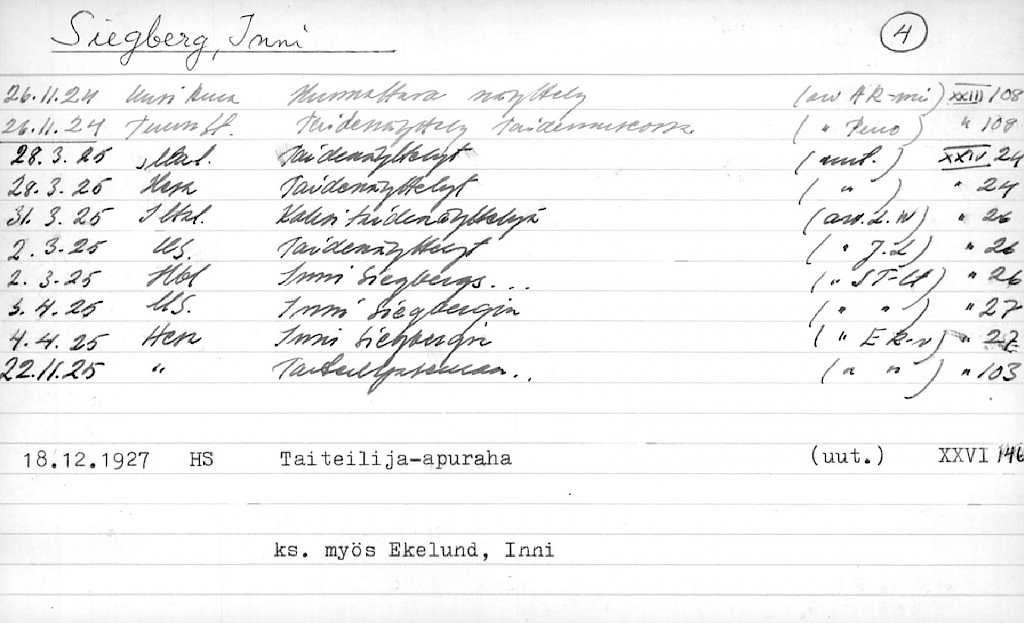 Siegberg, Inni 4
26.11.24 Uusi Aura näyttely (arv AK-mi) XXIII 108
26.11.24 Turun St. Taidenäyttely Taidemuseossa ( " ) " 108
28.3.25 Taidenäyttelyt (uut.) XXIV 24
28.3.25 Taidenäyttelyt ( " ) " 24
31.3.25 Iltal. Kaksi taidenäyttelyä (arv. L.W) " 26
2.3.25 US. Taidenäyttelyt ( " J.L) " 26
2.3.25 Hbl Inni Siegbergs... ( " ) " 26
3.4.25 US. Inni Siegbergin ( " " ) " 27
4.4.25 Inni Siegbergin ( " E R-r) " 27
22.11.25 " ( " " ) " 103
18.12.1927 HS Taiteilija-apuraha (uut.) XXVI 146
ks. myös Ekelund, Inni